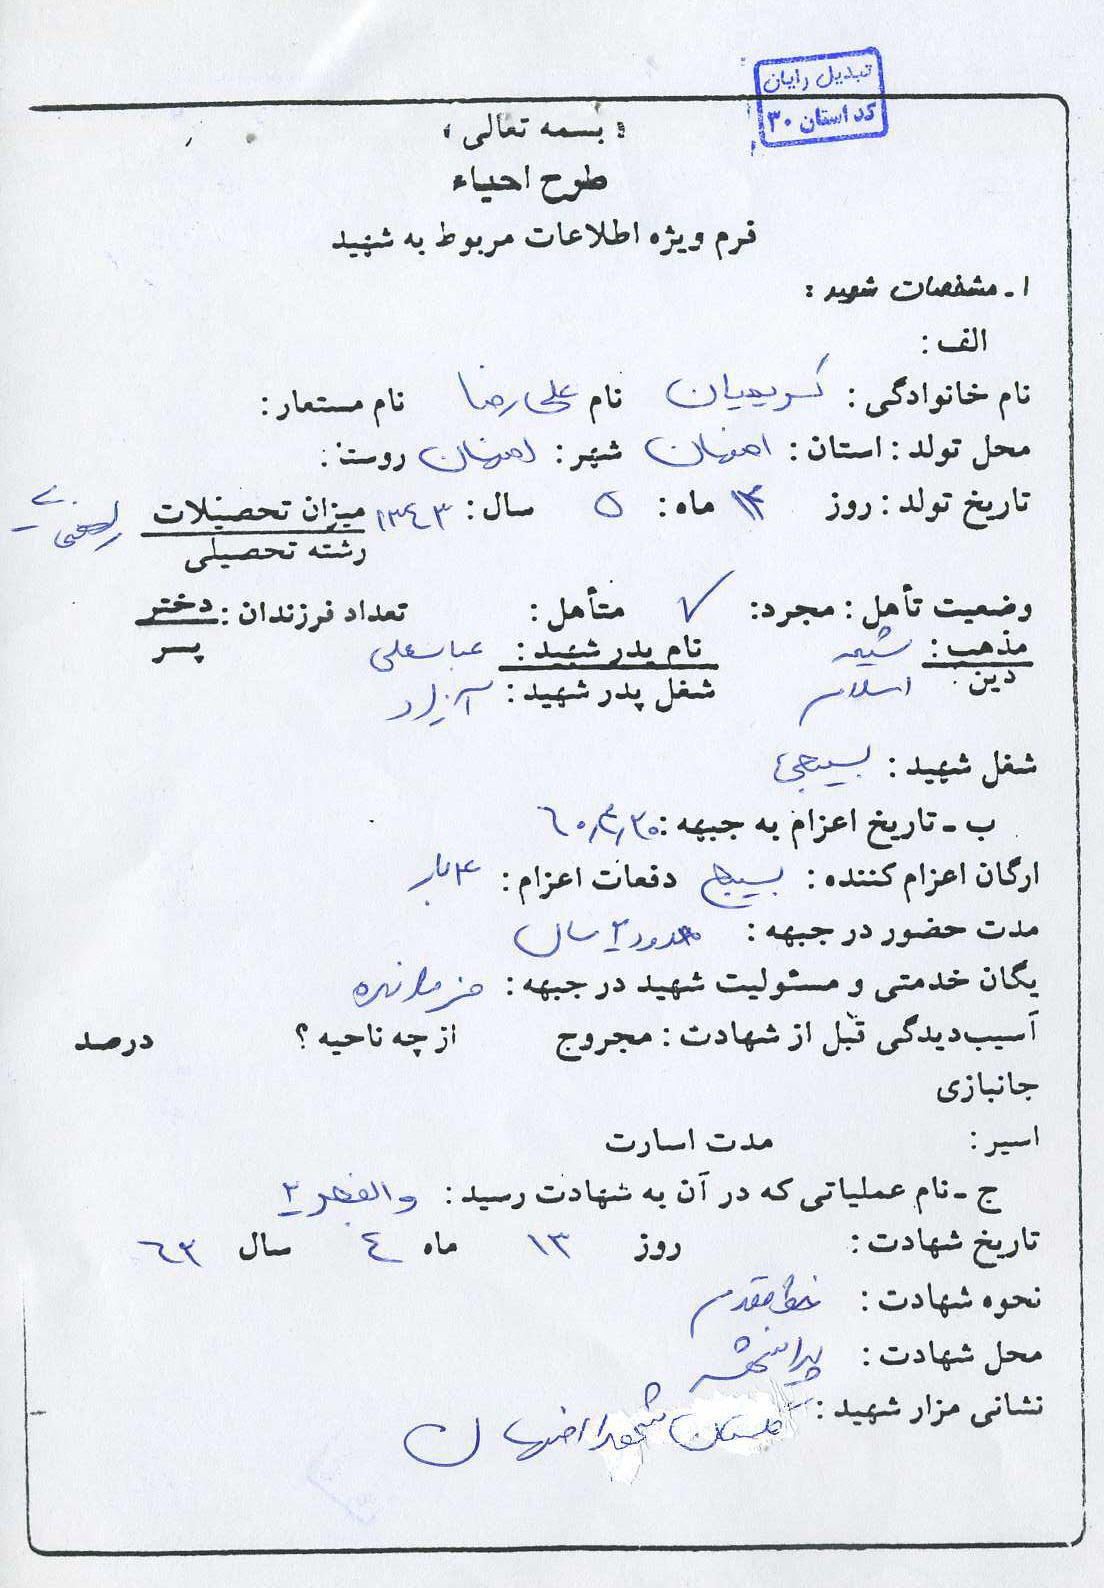 تبدیل رایان
کد استان ۳۰
« بسمه تعالی »
طرح احیاء
فرم ویژه اطلاعات مربوط به شهید
۱ـ مشخصات شهید :
الف :
نام خانوادگی : کریمیان نام علی رضا نام مستعار :
محل تولد : استان : اصفهان شهر : اصفهان روستا :
تاریخ تولد : روز ۱۴ ماه : ۵ سال : ۱۳۴۳ میزان تحصیلات
رشته تحصیلی
وضعیت تأهل : مجرد : ✓ متأهل : تعداد فرزندان : دختر
پسر
مذهب : شیعه نام پدر شهید : عباسعلی
دین : اسلام شغل پدر شهید : آزاد
شغل شهید : بسیجی
ب ـ تاریخ اعزام به جبهه : ۶۰٫۴٫۲۰
ارگان اعزام کننده : بسیج دفعات اعزام : ۴ بار
مدت حضور در جبهه : حدود ۲ سال
یگان خدمتی و مسئولیت شهید در جبهه : فرمانده
آسیب‌دیدگی قبل از شهادت : مجروح از چه ناحیه ؟ درصد
جانبازی
اسیر : مدت اسارت
ج ـ نام عملیاتی که در آن به شهادت رسید : والفجر ۲
تاریخ شهادت : روز ۱۳ ماه ٤ سال ٦۳
نحوه شهادت : خط مقدم
محل شهادت : پیرانشهر
نشانی مزار شهید : گلستان شهدا اصفهان